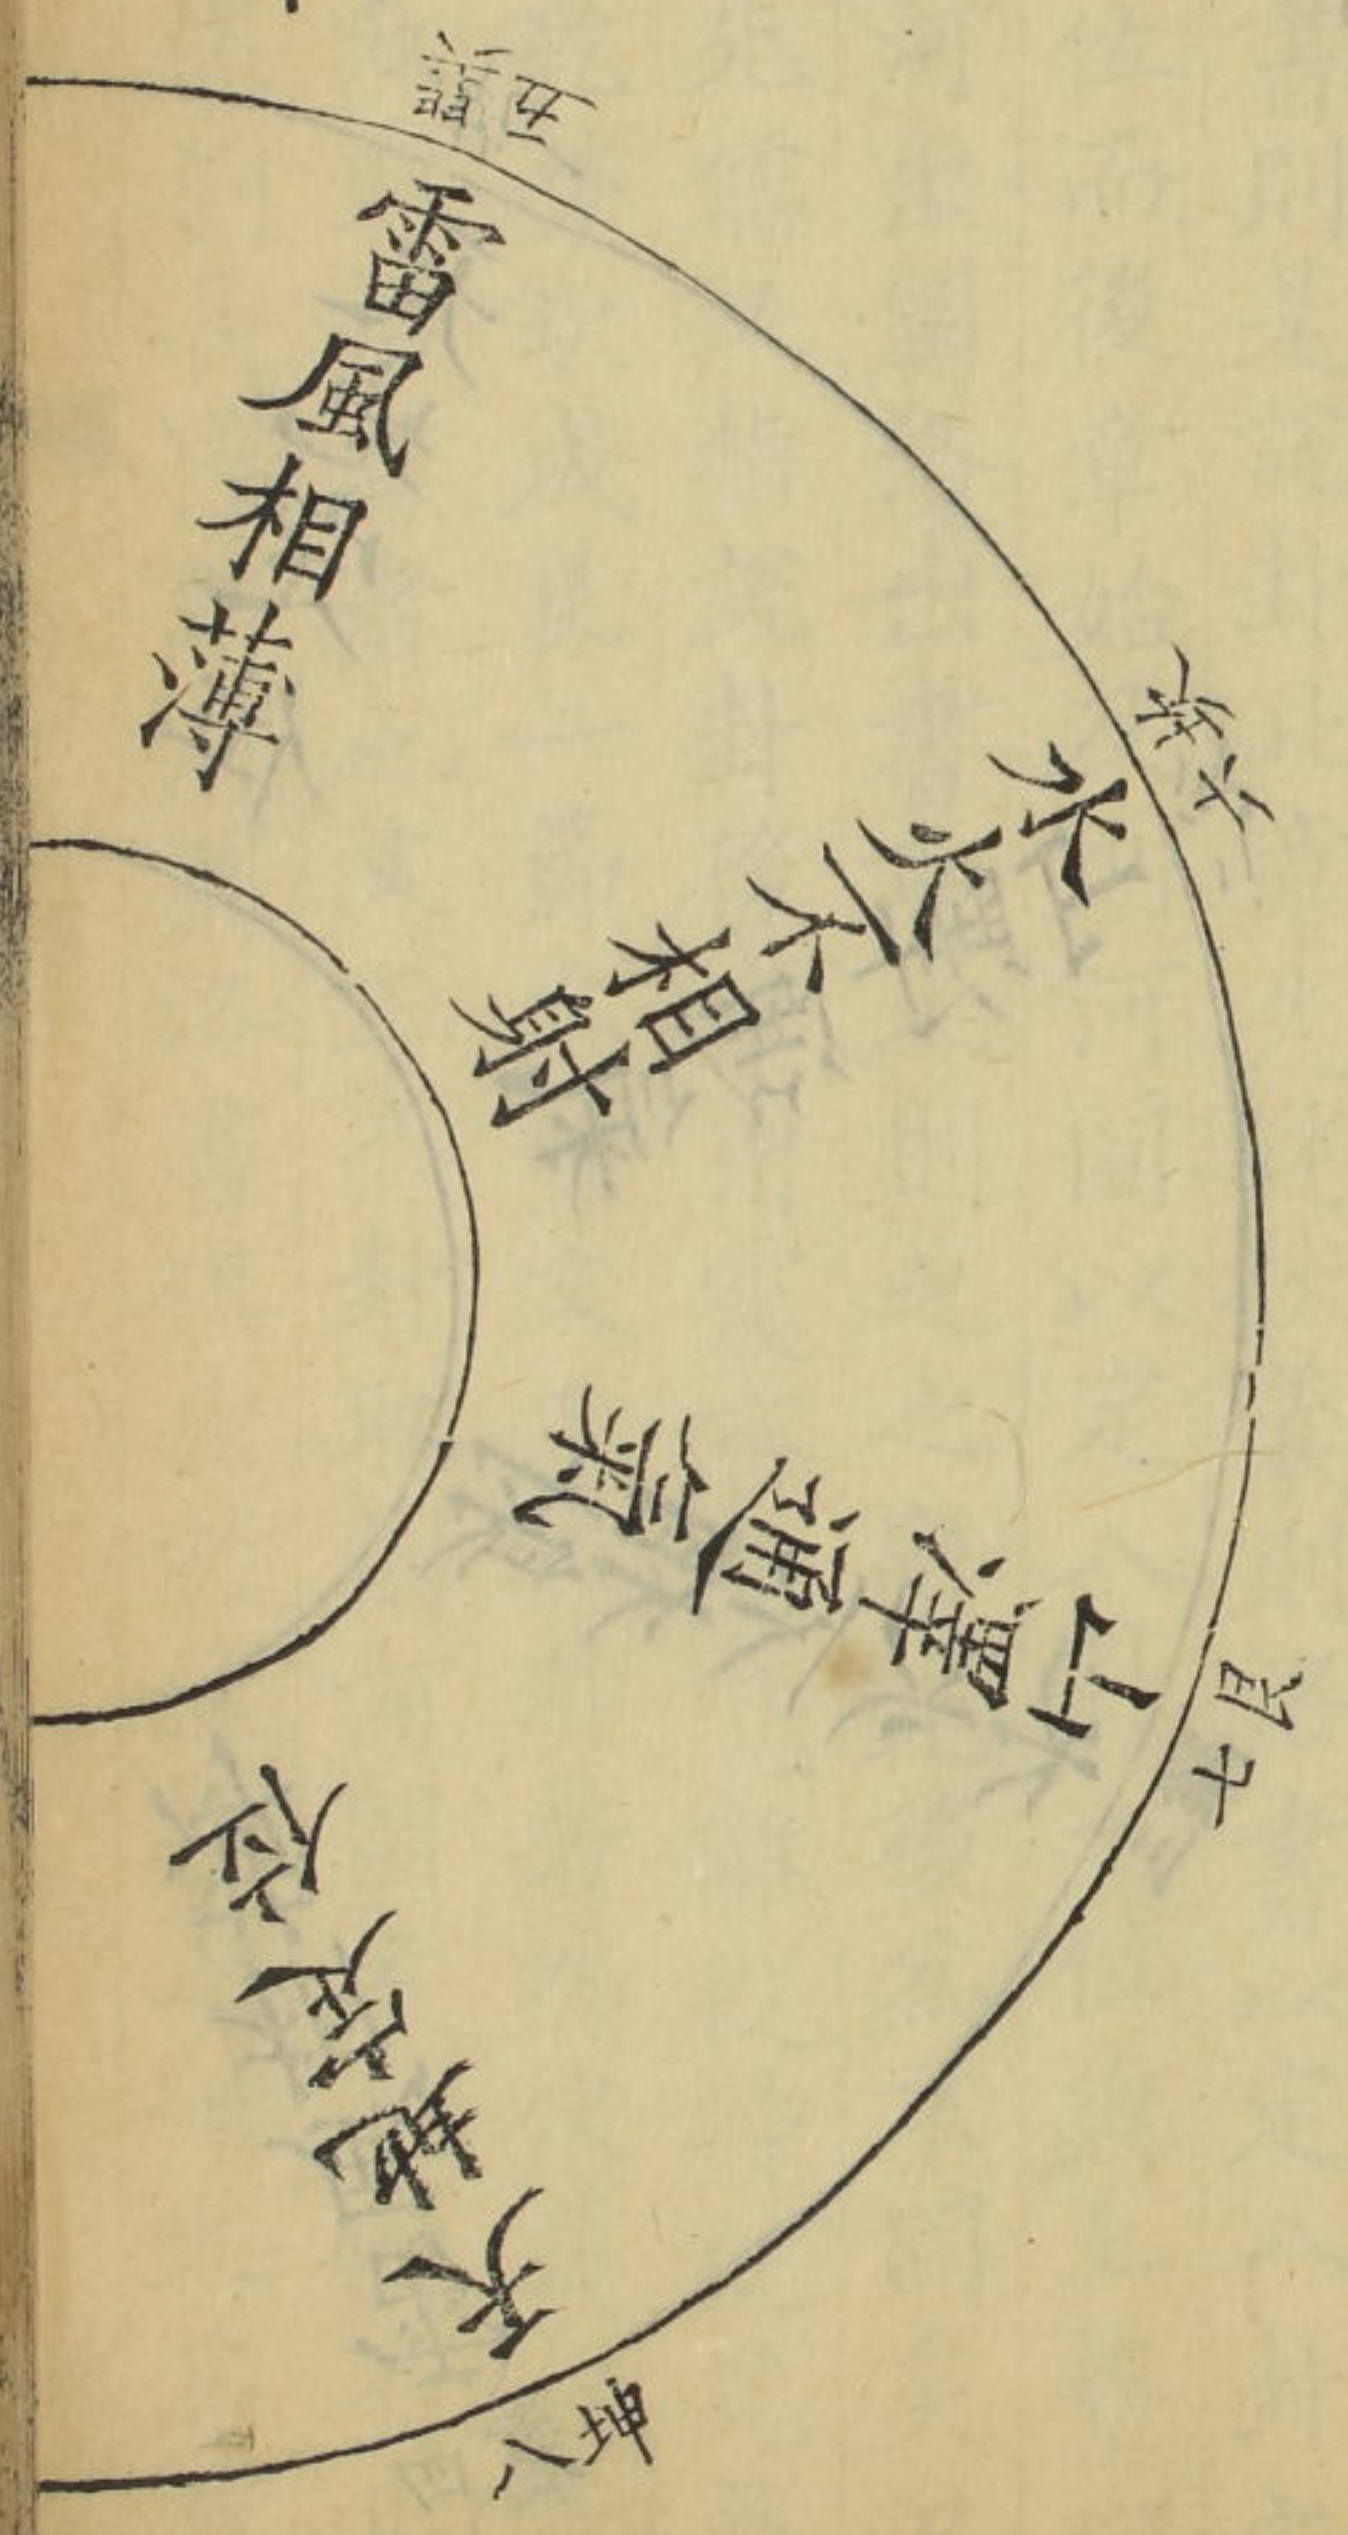 巽五
雷風相薄
坎六
水火不相射
艮七
山澤通氣
坤八
天地定位